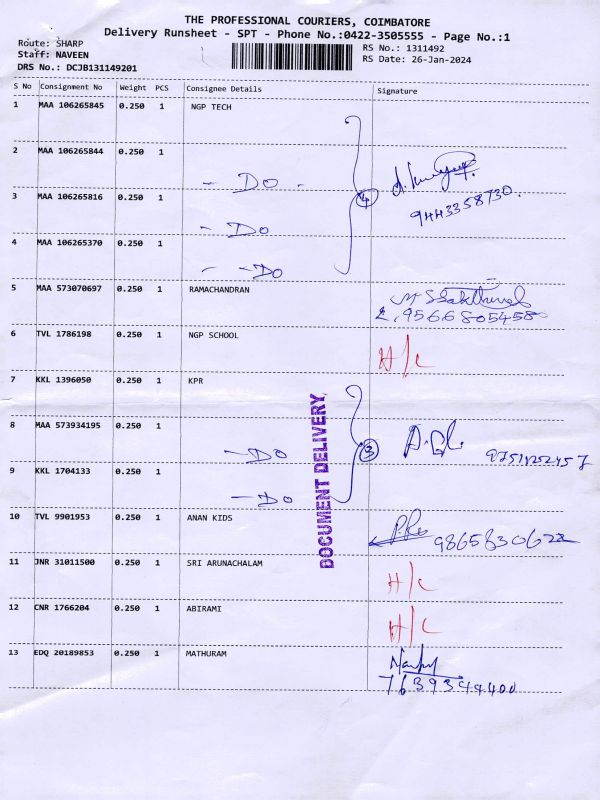 THE PROFESSIONAL COURIERS, COIMBATORE
Delivery Runsheet - SPT - Phone No.:0422-3505555 - Page No.:1
Route: SHARP
Staff: NAVEEN
DRS No.: DCJB131149201
RS No.: 1311492
RS Date: 26-Jan-2024
S No Consignment No Weight PCS Consignee Details Signature
1 MAA 106265845 0.250 1 NGP TECH
2 MAA 106265844 0.250 1 - DO -
3 MAA 106265816 0.250 1 - DO
4 9443358730.
4 MAA 106265370 0.250 1 - - DO
5 MAA 573070697 0.250 1 RAMACHANDRAN
6 TVL 1786198 0.250 1 NGP SCHOOL H/c
7 KKL 1396050 0.250 1 KPR
8 MAA 573934195 0.250 1 - DO
3
9 KKL 1704133 0.250 1 - DO
DOCUMENT DELIVERY
10 TVL 9901953 0.250 1 ANAN KIDS
11 JNR 31011500 0.250 1 SRI ARUNACHALAM H/c
12 CNR 1766204 0.250 1 ABIRAMI H/c
13 EDQ 20189853 0.250 1 MATHURAM